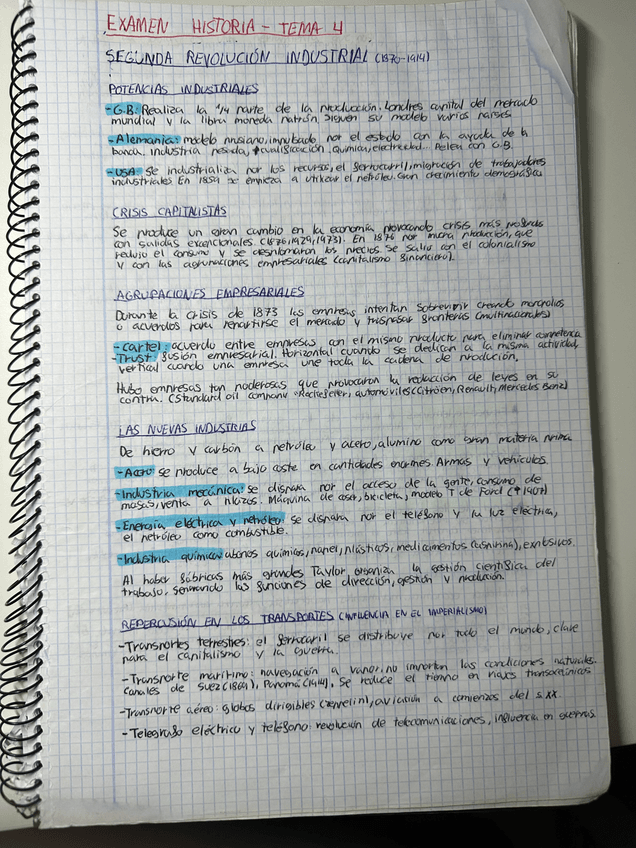 EXAMEN HISTORIA - TEMA 4
SEGUNDA REVOLUCIÓN INDUSTRIAL (1870-1914)
POTENCIAS INDUSTRIALES
-G.B: Realiza la 1/4 parte de la producción. Londres capital del mercado
mundial y la libra moneda patrón. Siguen su modelo varios países.
-Alemania: modelo prusiano, impulsado por el estado con la ayuda de la
banca, industria pesada, cualificación. Química, electricidad. Pelea con G.B.
-USA: se industrializa por los recursos, el ferrocarril, migración de trabajadores
industriales. En 1859 se empieza a utilizar el petróleo. Gran crecimiento demográfico
CRISIS CAPITALISTAS
Se produce un gran cambio en la economía provocando crisis más profundas
con salidas excepcionales (1873, 1929, 1973). En 1873 por mucha producción, que
redujo el consumo y se desplomaron los precios. Se salió con el colonialismo
y con las agrupaciones empresariales (capitalismo financiero).
AGRUPACIONES EMPRESARIALES
Durante la crisis de 1873 las empresas intentan sobrevivir creando monopolios
o acuerdos para repartirse el mercado y traspasar fronteras (multinacionales)
-Cartel: acuerdo entre empresas con el mismo producto para eliminar competencia
-Trust: fusión empresarial. Horizontal cuando se dedican a la misma actividad,
vertical cuando una empresa une toda la cadena de producción.
Hubo empresas tan poderosas que provocaron la redacción de leyes en su
contra. (Standard oil company - Rockefeller, automóviles (Citröen, Renault, Mercedes Benz)
LAS NUEVAS INDUSTRIAS
De hierro y carbón a petróleo y acero, alumino como gran materia prima
-Acero: se produce a bajo coste en cantidades enormes. Armas y vehículos.
-Industria mecánica: se dispara por el acceso de la gente, consumo de
masas, venta a plazos. Máquina de coser, bicicleta, modelo T de Ford
-Energía eléctrica y petróleo: se dispara por el teléfono y la luz eléctrica,
el petróleo como combustible.
-Industria química: abonos químicos, papel, plásticos, medicamentos (aspirina), explosivos.
Al haber fábricas más grandes Taylor organiza la gestión científica del
trabajo, separando las funciones de dirección, gestión y producción.
REPERCUSIÓN EN LOS TRANSPORTES (INFLUENCIA EN EL IMPERIALISMO)
-Transportes terrestres: el ferrocarril se distribuye por todo el mundo, clave
para el capitalismo y la guerra.
-Transporte marítimo: navegación a vapor, no importan las condiciones naturales.
Canales de Suez (1869), Panamá (1914). Se reduce el tiempo en viajes transoceánicos
-Transporte aéreo: globos dirigibles (zeppelin), aviación a comienzos del s.XX.
-Telegrafo eléctrico y teléfono: revolución de telecomunicaciones, influencia en guerras.